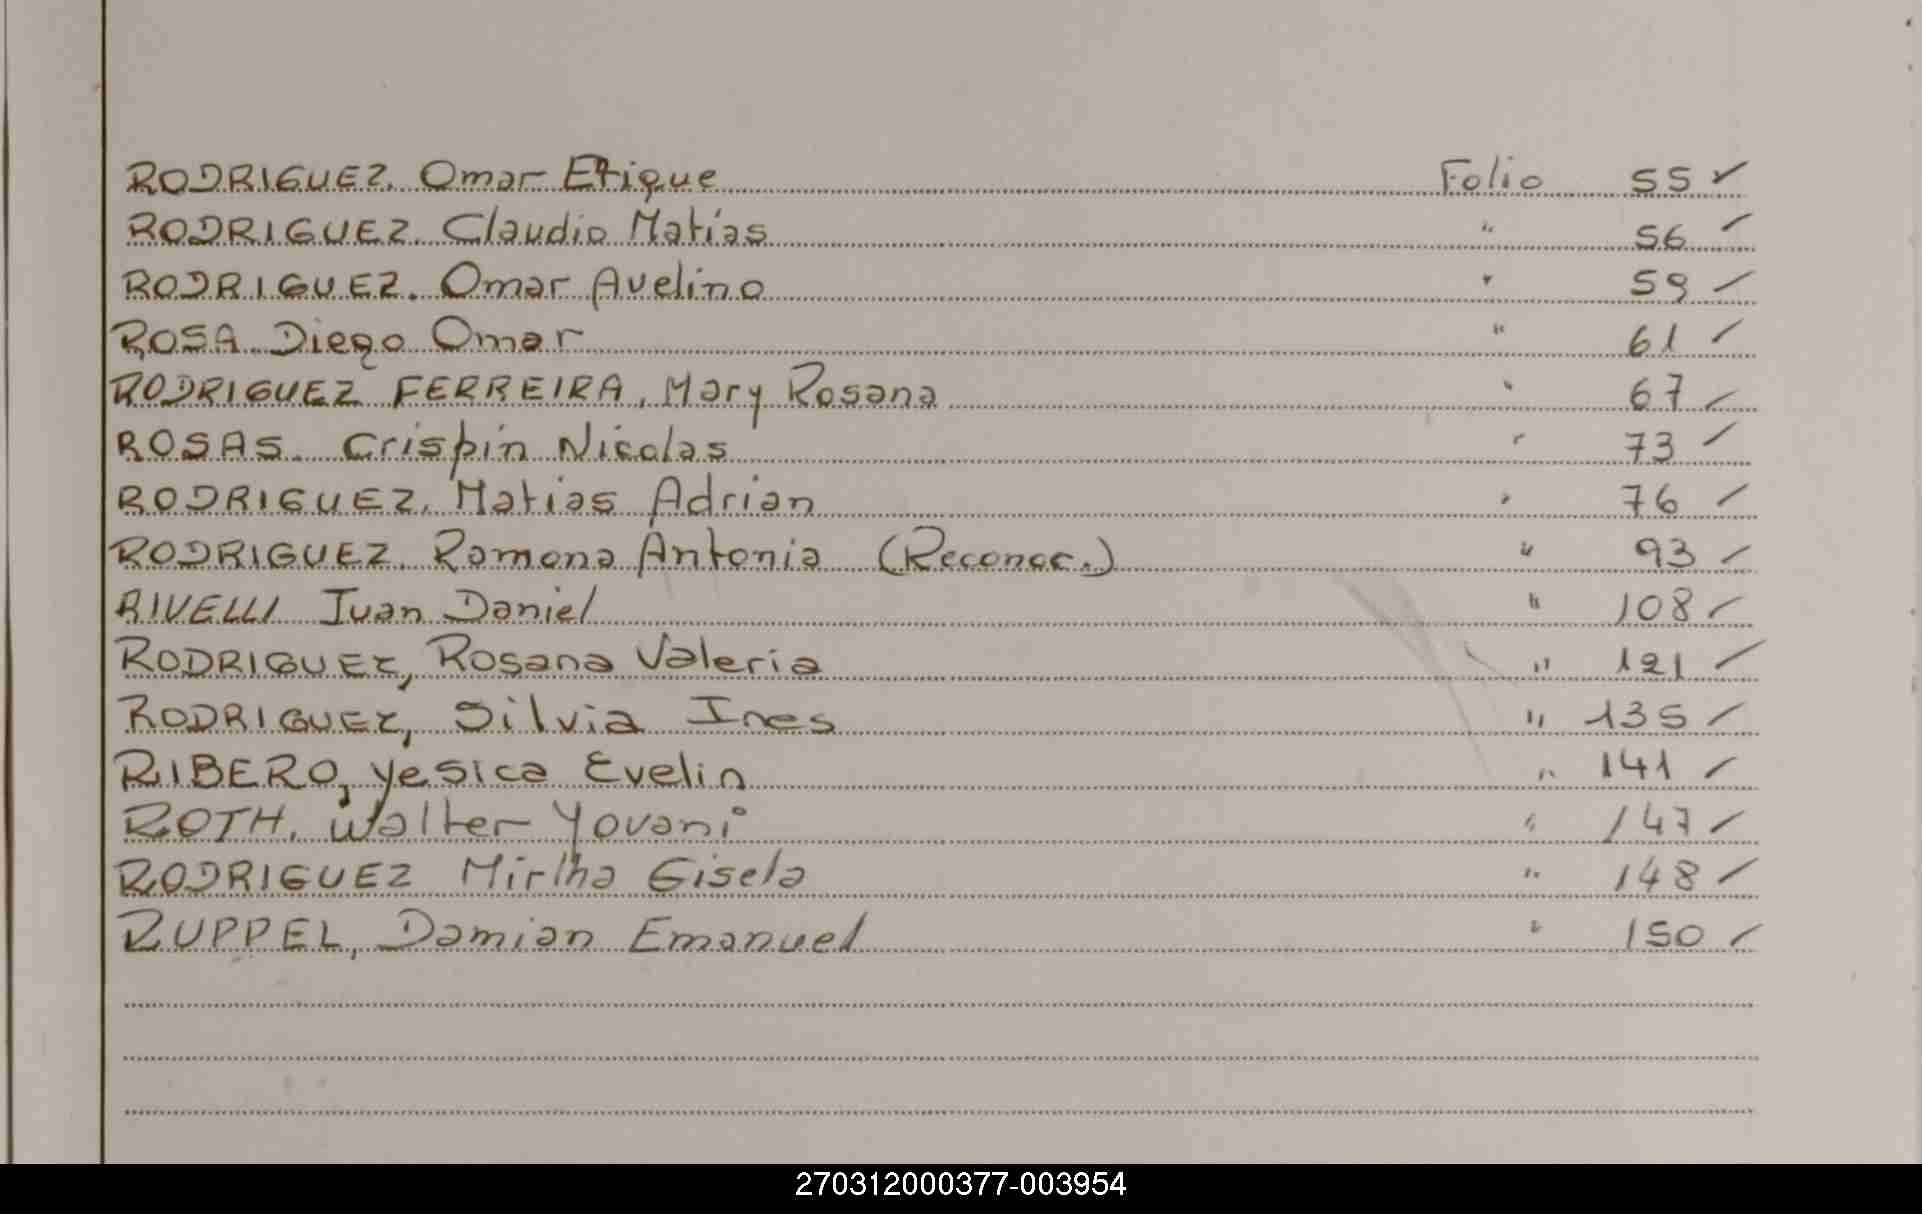 RODRIGUEZ. Omar Erique Folio 55 ✓
RODRIGUEZ. Claudio Matias " 56 ✓
RODRIGUEZ. Omar Avelino " 59 ✓
ROSA. Diego Omar " 61 ✓
RODRIGUEZ FERREIRA, Mary Rosana " 67 ✓
ROSAS. Crispin Nicolas " 73 ✓
RODRIGUEZ. Matias Adrian " 76 ✓
RODRIGUEZ. Ramona Antonia (Reconoc.) " 93 ✓
RIVELLI Juan Daniel " 108 ✓
RODRIGUEZ, Rosana Valeria " 121 ✓
RODRIGUEZ, Silvia Ines " 135 ✓
RIBERO, Yesica Evelin " 141 ✓
ROTH. Walter Yovani " 147 ✓
RODRIGUEZ Mirtha Gisela " 148 ✓
RUPPEL, Damian Emanuel " 150 ✓
270312000377-003954